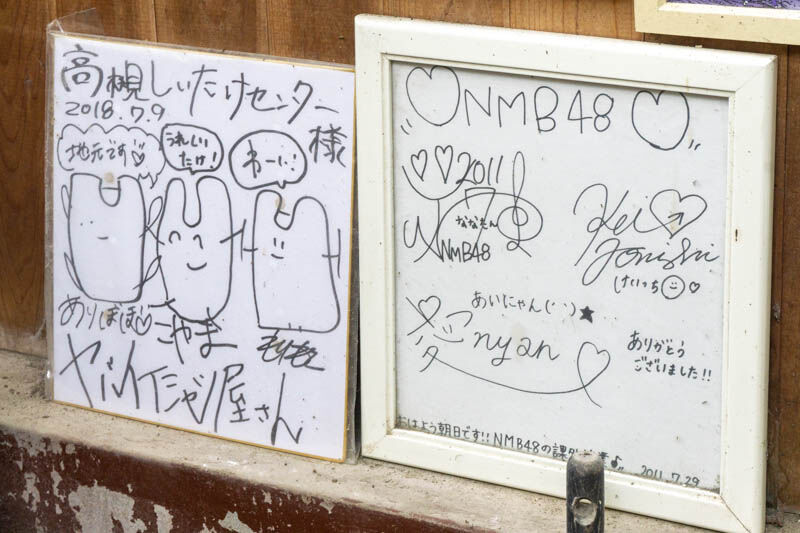 高槻しいたけセンター様
2018.7.9
地元です♡
うれしい
たけ!
わーい!
ありぼぼ♡
こやま
もりもと
ヤバイTシャツ屋さん
♡NMB48♡
2011
ななもん
NMB48
Kei Jonishi
けいっち
あいにゃん(˙˙)★...
愛nyan
ありがとう
ございました!!
おはよう朝日です!! NMB48の課外
2011.7.29